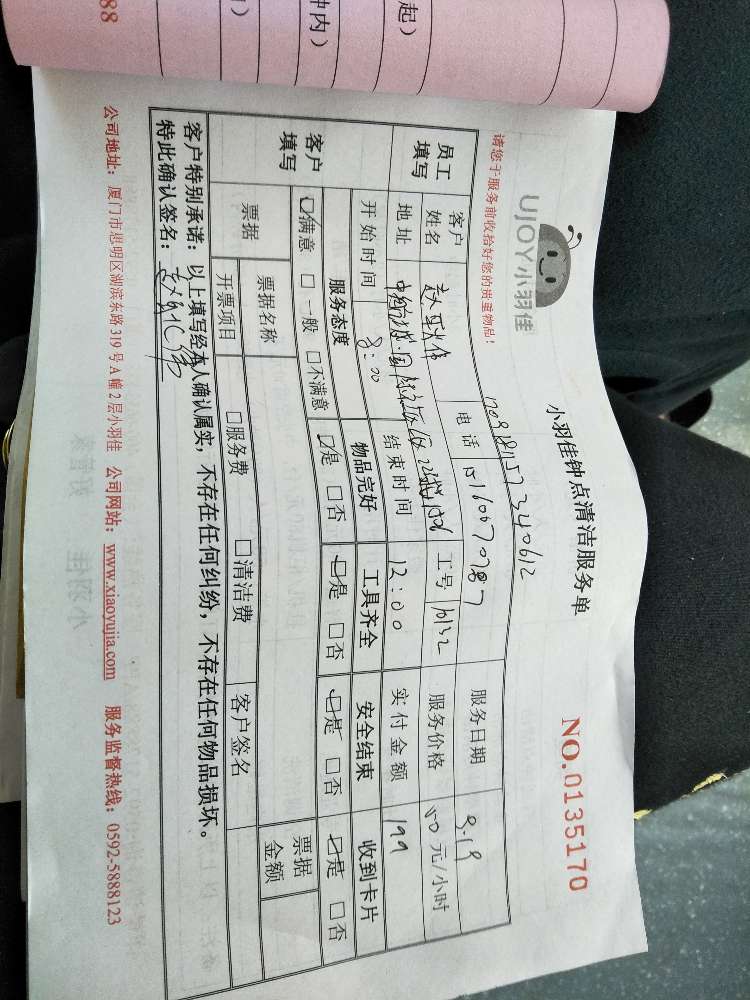 起)
钟内)
88
UJOY小羽佳
小羽佳钟点清洁服务单
NO.0135170
请您于服务前收拾好您的贵重物品！
员工填写
客户姓名
电话
服务日期 9.19
地址
工号 10132
服务价格 50元/小时
开始时间 8:00
结束时间 12:00
实付金额 199
客户填写
服务态度 物品完好 工具齐全 安全结束 收到卡片
☑满意 □一般 □不满意 ☑是 □否 ☑是 □否 ☑是 □否 ☑是 □否
票据
票据名称
票据金额
开票项目 □服务费 □清洁费 客户签名
客户特别承诺：以上填写经本人确认属实，不存在任何纠纷，不存在任何物品损坏。
特此确认签名：
公司地址：厦门市思明区湖滨东路319号A幢2层小羽佳 公司网站：www.xiaoyujia.com 服务监督热线：0592-5888123